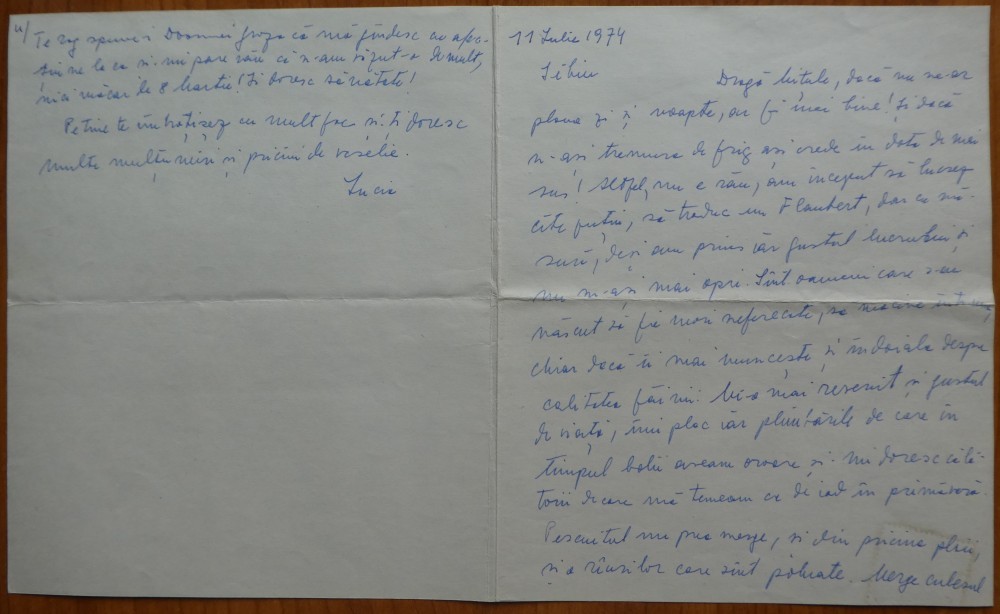 4/ Te rog spune-i Doamnei Groza că mă gîndesc cu afec-
țiune la ea și-mi pare rău că n-am văzut-o demult,
nici măcar de 8 Martie! Îi doresc sănătate!
Pe tine te îmbrățișez cu mult foc și-ți doresc
multe mulțumiri și pricini de veselie.
Lucia
11 Iulie 1974
Sibiu
Dragă , dacă nu ne-ar
ploua zi și noapte, ar fi mai bine! Și dacă
n-aș tremura de frig aș crede în data de mai
sus! Altfel, nu e rău, am început să lucrez
cîte puțin, să traduc un Flaubert, dar cu mă-
sură, deși am prins iar gustul lucrului și
nu m-aș mai opri. Sînt oameni care s-au
născut să fie mori neferecate, să macine întruna,
chiar dacă îi mai muncește și îndoiala despre
calitatea făinii. Mi-a mai revenit și gustul
de viață, îmi plac iar plimbările de care în
timpul bolii aveam oroare și-mi doresc călă-
torii de care mă temeam ca de iad în primăvară.
Pescuitul nu prea merge, și din pricina ploii,
și a rîurilor care sînt poluate. Merge culesul